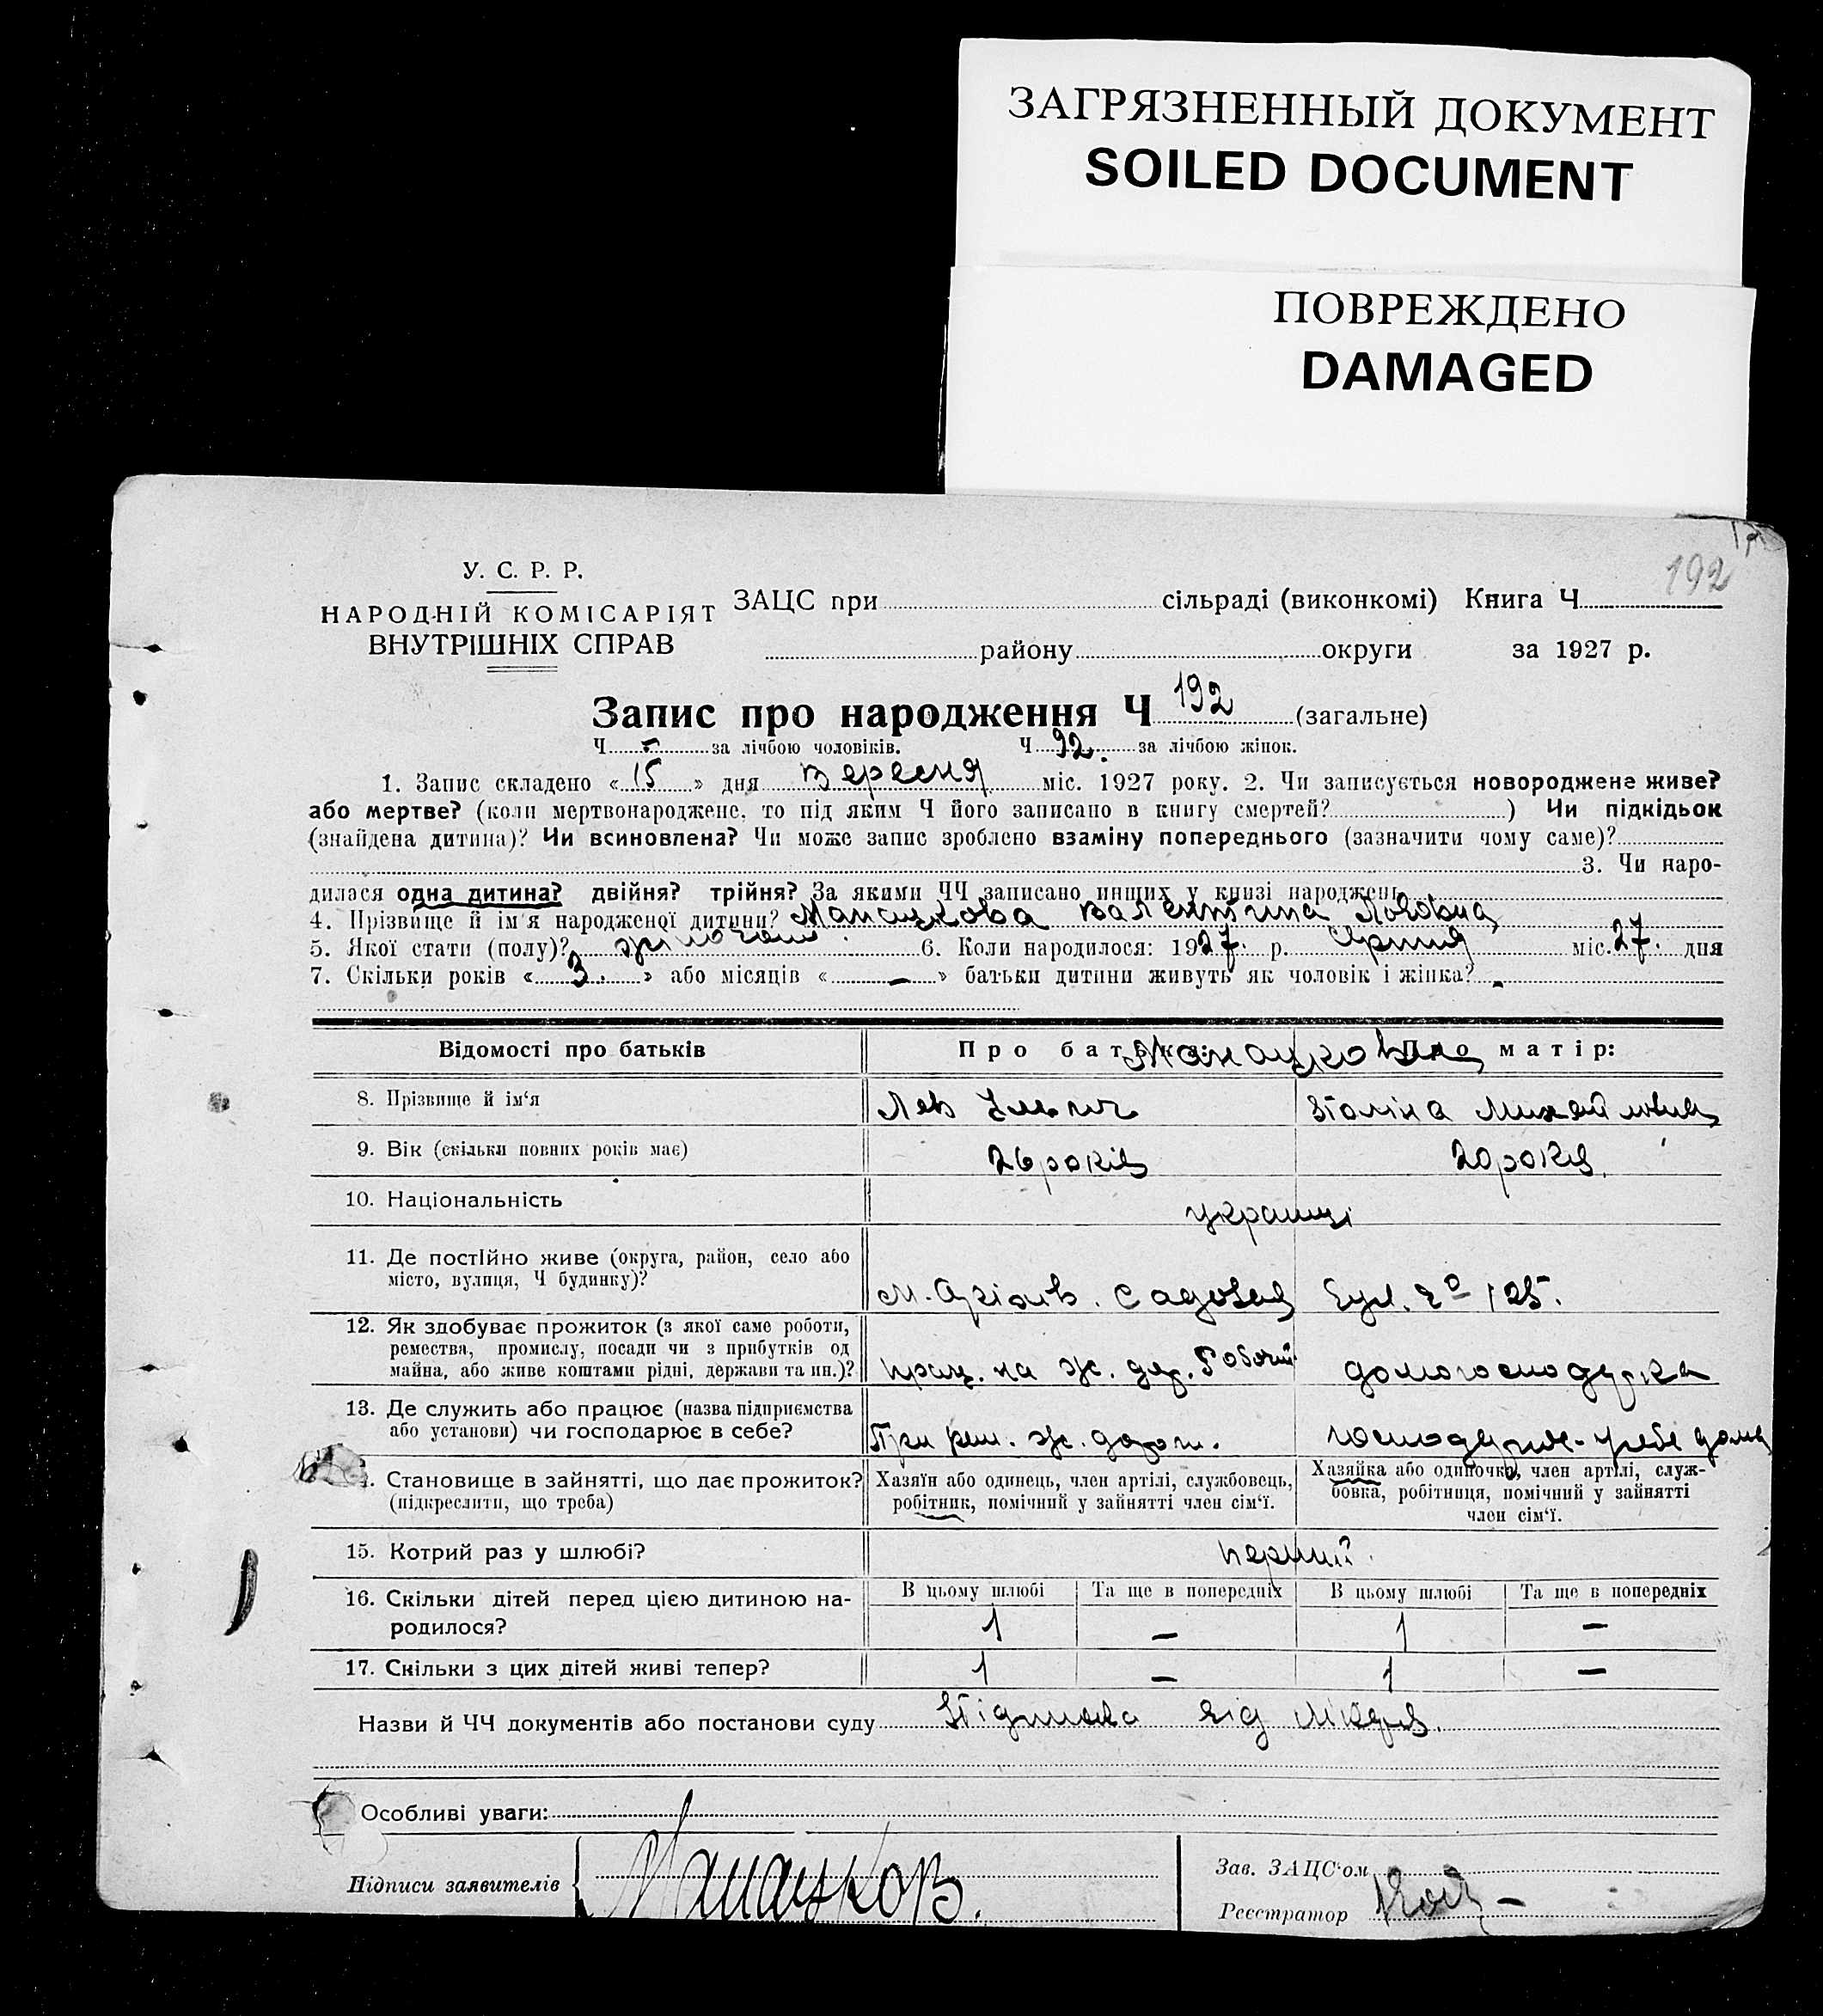 ЗАГРЯЗНЕННЫЙ ДОКУМЕНТ
SOILED DOCUMENT
ПОВРЕЖДЕНО
DAMAGED
192
У. С. Р. Р.
НАРОДНІЙ КОМІСАРІЯТ
ВНУТРІШНІХ СПРАВ
ЗАЦС при сільраді (виконкомі) Книга Ч
району округи за 1927 р.
Запис про народження Ч 192 (загальне)
Ч - за лічбою чоловіків. Ч 92. за лічбою жінок.
1. Запис складено «15» дня Вересня міс. 1927 року. 2. Чи записується новороджене живе?
або мертве? (коли мертвонароджене, то під яким Ч його записано в книгу смертей? ) Чи підкідьок
(знайдена дитина)? Чи всиновлена? Чи може запис зроблено взаміну попереднього (зазначити чому саме)?
3. Чи наро-
дилася одна дитина? двійня? трійня? За якими ЧЧ записано инших у книзі народжень
4. Прізвище й ім'я народженої дитини? Манацкова Валентина Львовна
5. Якої стати (полу)? 6. Коли народилося: 1927. р. Серпня міс. 27. дня
7. Скільки років «3.» або місяців «-» батьки дитини живуть як чоловік і жінка? -
Відомості про батьків Про батька: Про матір:
Манацкови
8. Прізвище й ім'я Лев Ильич Михайловна
9. Вік (скільки повних років має) 26 років 20 років.
10. Національність українці
11. Де постійно живе (округа, район, село або
місто, вулиця, Ч будинку)? м. Садовая вул. 125.
12. Як здобуває прожиток (з якої саме роботи,
ремества, промислу, посади чи з прибутків од
майна, або живе коштами рідні, держави та ин.)? прац. на зж. дор. Робочий домогосподарка
13. Де служить або працює (назва підприємства
або установи) чи господарює в себе? При зж. дорог. господарює у себе дома
Становище в зайнятті, що дає прожиток?
(підкреслити, що треба)
Хазяїн або одинець, член артілі, службовець,
робітник, помічний у зайнятті член сім'ї.
Хазяйка або одиночка, член артілі, служ-
бовка, робітниця, помічний у зайнятті
член сім'ї.
15. Котрий раз у шлюбі? перший.
16. Скільки дітей перед цією дитиною на-
родилося?
В цьому шлюбі Та ще в попередніх В цьому шлюбі Та ще в попередніх
1 - 1 -
17. Скільки з цих дітей живі тепер? 1 - 1 -
Назви й ЧЧ документів або постанови суду від лікаря.
Особливі уваги:
Підписи заявителів Манацков.
Зав. ЗАЦС'ом
Реєстратор